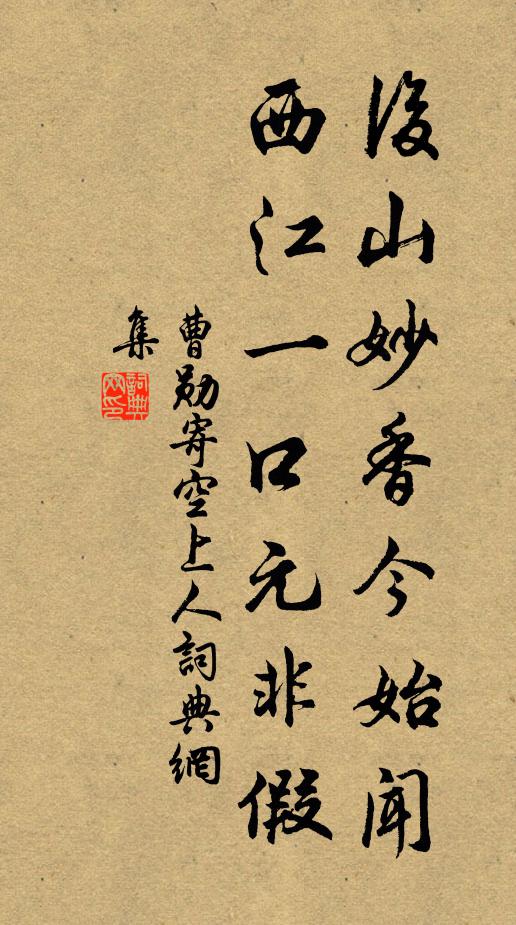 後山妙香今始聞
西江一口元非假
曹勛寄空上人詞典網
集
詞典網印